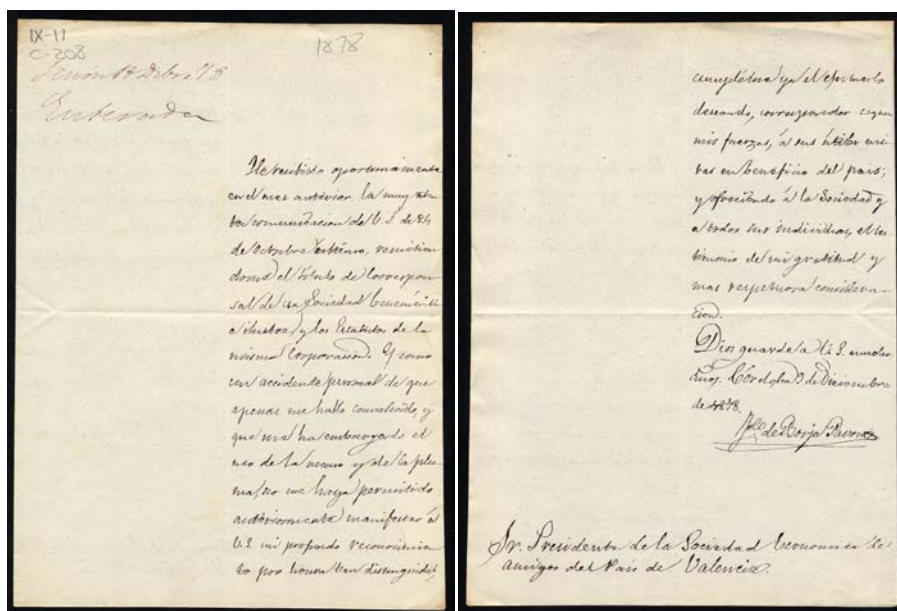 IX-11
C-208
1878
Sesión 18 Dbre 78
Enterada
He recibido oportunamente
en el mes anterior, la muy aten
ta comunicacion de U. S. de 24
de Octubre último, remitien
dome el título de Correspon
sal de esa Sociedad Benemérita
e ilustre, y los Estatutos de la
misma Corporacion. Y como
un accidente personal de que
apenas me hallo convalecido, y
que me ha embargado el
uso de la mano y de la plu
ma, no me haya permitido
anteriormente manifestar á
U. S. mi profundo reconocimien
to por honra tan distinguida,
cumplo hoy
deseando, corresponder segun
mis fuerzas, á sus útiles
en beneficio del pais;
y ofreciendo á la Sociedad y
a todos sus individuos, el tes
timonio de mi gratitud y
mas respetuosa considera-
cion.
Dios guarde a U. S. muchos
años. Córdoba 9 de Diciembre
de 1878.
Fco de Borja Pavon
Sr. Presidente de la Sociedad Economica de
amigos del Pais de Valencia.